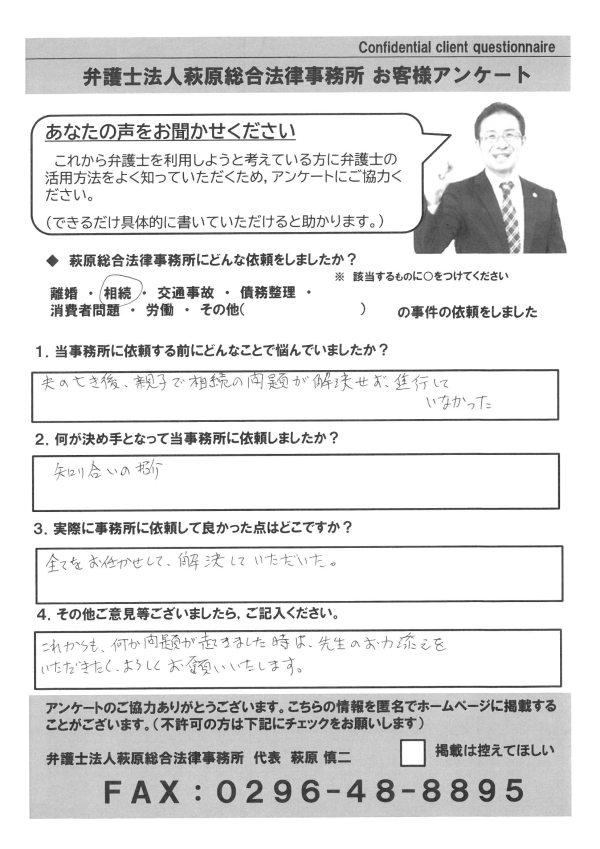 Confidential client questionnaire
弁護士法人萩原総合法律事務所 お客様アンケート
あなたの声をお聞かせください
これから弁護士を利用しようと考えている方に弁護士の
活用方法をよく知っていただくため，アンケートにご協力く
ださい。
（できるだけ具体的に書いていただけると助かります。）
◆ 萩原総合法律事務所にどんな依頼をしましたか？
※ 該当するものに○をつけてください
離婚 ・ 相続 ・ 交通事故 ・ 債務整理 ・
消費者問題 ・ 労働 ・ その他（ ） の事件の依頼をしました
１．当事務所に依頼する前にどんなことで悩んでいましたか？
夫の亡き後、親子で相続の問題が解決せず、進行して
いなかった
２．何が決め手となって当事務所に依頼しましたか？
知り合いの紹介
３．実際に事務所に依頼して良かった点はどこですか？
全てをお任かせして、解決していただいた。
４．その他ご意見等ございましたら，ご記入ください。
これからも、何か問題が起きました時は、先生のお力添えを
いただきたく、よろしくお願いいたします。
アンケートのご協力ありがとうございます。こちらの情報を匿名でホームページに掲載する
ことがございます。（不許可の方は下記にチェックをお願いします）
弁護士法人萩原総合法律事務所 代表 萩原 慎二
掲載は控えてほしい
ＦＡＸ：０２９６－４８－８８９５